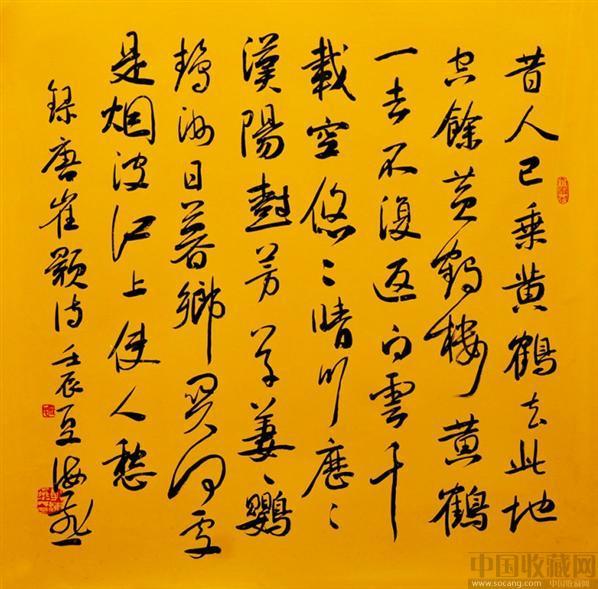 昔人已乘黄鶴去此地
空餘黄鶴楼黄鶴
一去不復返白雲千
載空悠〻晴川歷〻
漢陽樹芳草萋〻鸚
鵡洲日暮鄉関何處
是烟波江上使人愁
録唐崔颢诗 壬辰夏海
中国收藏网
www.socang.com